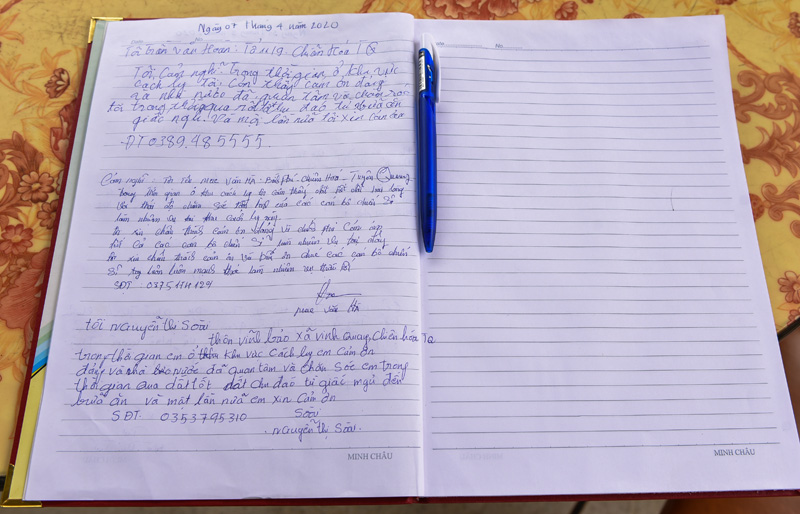 Ngày 07 Tháng 4 năm 2020
Tôi trần văn Hoan: Tổ 419 Chiên Hoá TQ
Tôi Cảm nghĩ Trong thời gian ở khu vực
cách ly Tôi Còn thấy cảm ơn đảng
và nhà nước đã quan tâm và chăm sóc
tôi trong thời qua rất chu đáo từ bữa ăn
giấc ngủ. Và một lần nữa tôi xin cảm ơn
ĐT 0389.485555.
Cảm nghĩ: Tôi Tên Mac Văn Hà Chiêm Hoá - Tuyên Quang
trong thời gian ở khu cách ly tôi cảm thấy rất hài lòng
với thái độ chăm sóc của các cán bộ chiến sĩ
làm nhiệm vụ tại khu cách ly này
tôi xin chân thành cảm ơn Đảng và
tất cả các cán bộ chiến sĩ làm nhiệm vụ tại đây
tôi xin chân thành cảm ơn và chúc các cán bộ chiến
sĩ luôn luôn mạnh khoẻ làm nhiệm vụ
SĐT 0375114129
mac văn Hà
tôi Nguyễn thị Sôi
thôn vĩnh bảo xã vinh Quang, Chiên hóa TQ
trong thời gian em ở khu vực Cách ly em Cảm ơn
đảng và nhà nước đã quan tâm và chăm Sóc em trong
thời gian qua rất tốt rất chu đáo từ giấc ngủ đến
bữa ăn và một lần nữa em xin Cảm ơn
SĐT. 0353795310 Sôi
Nguyễn thị Sôi.
MINH CHÂU
MINH CHÂU